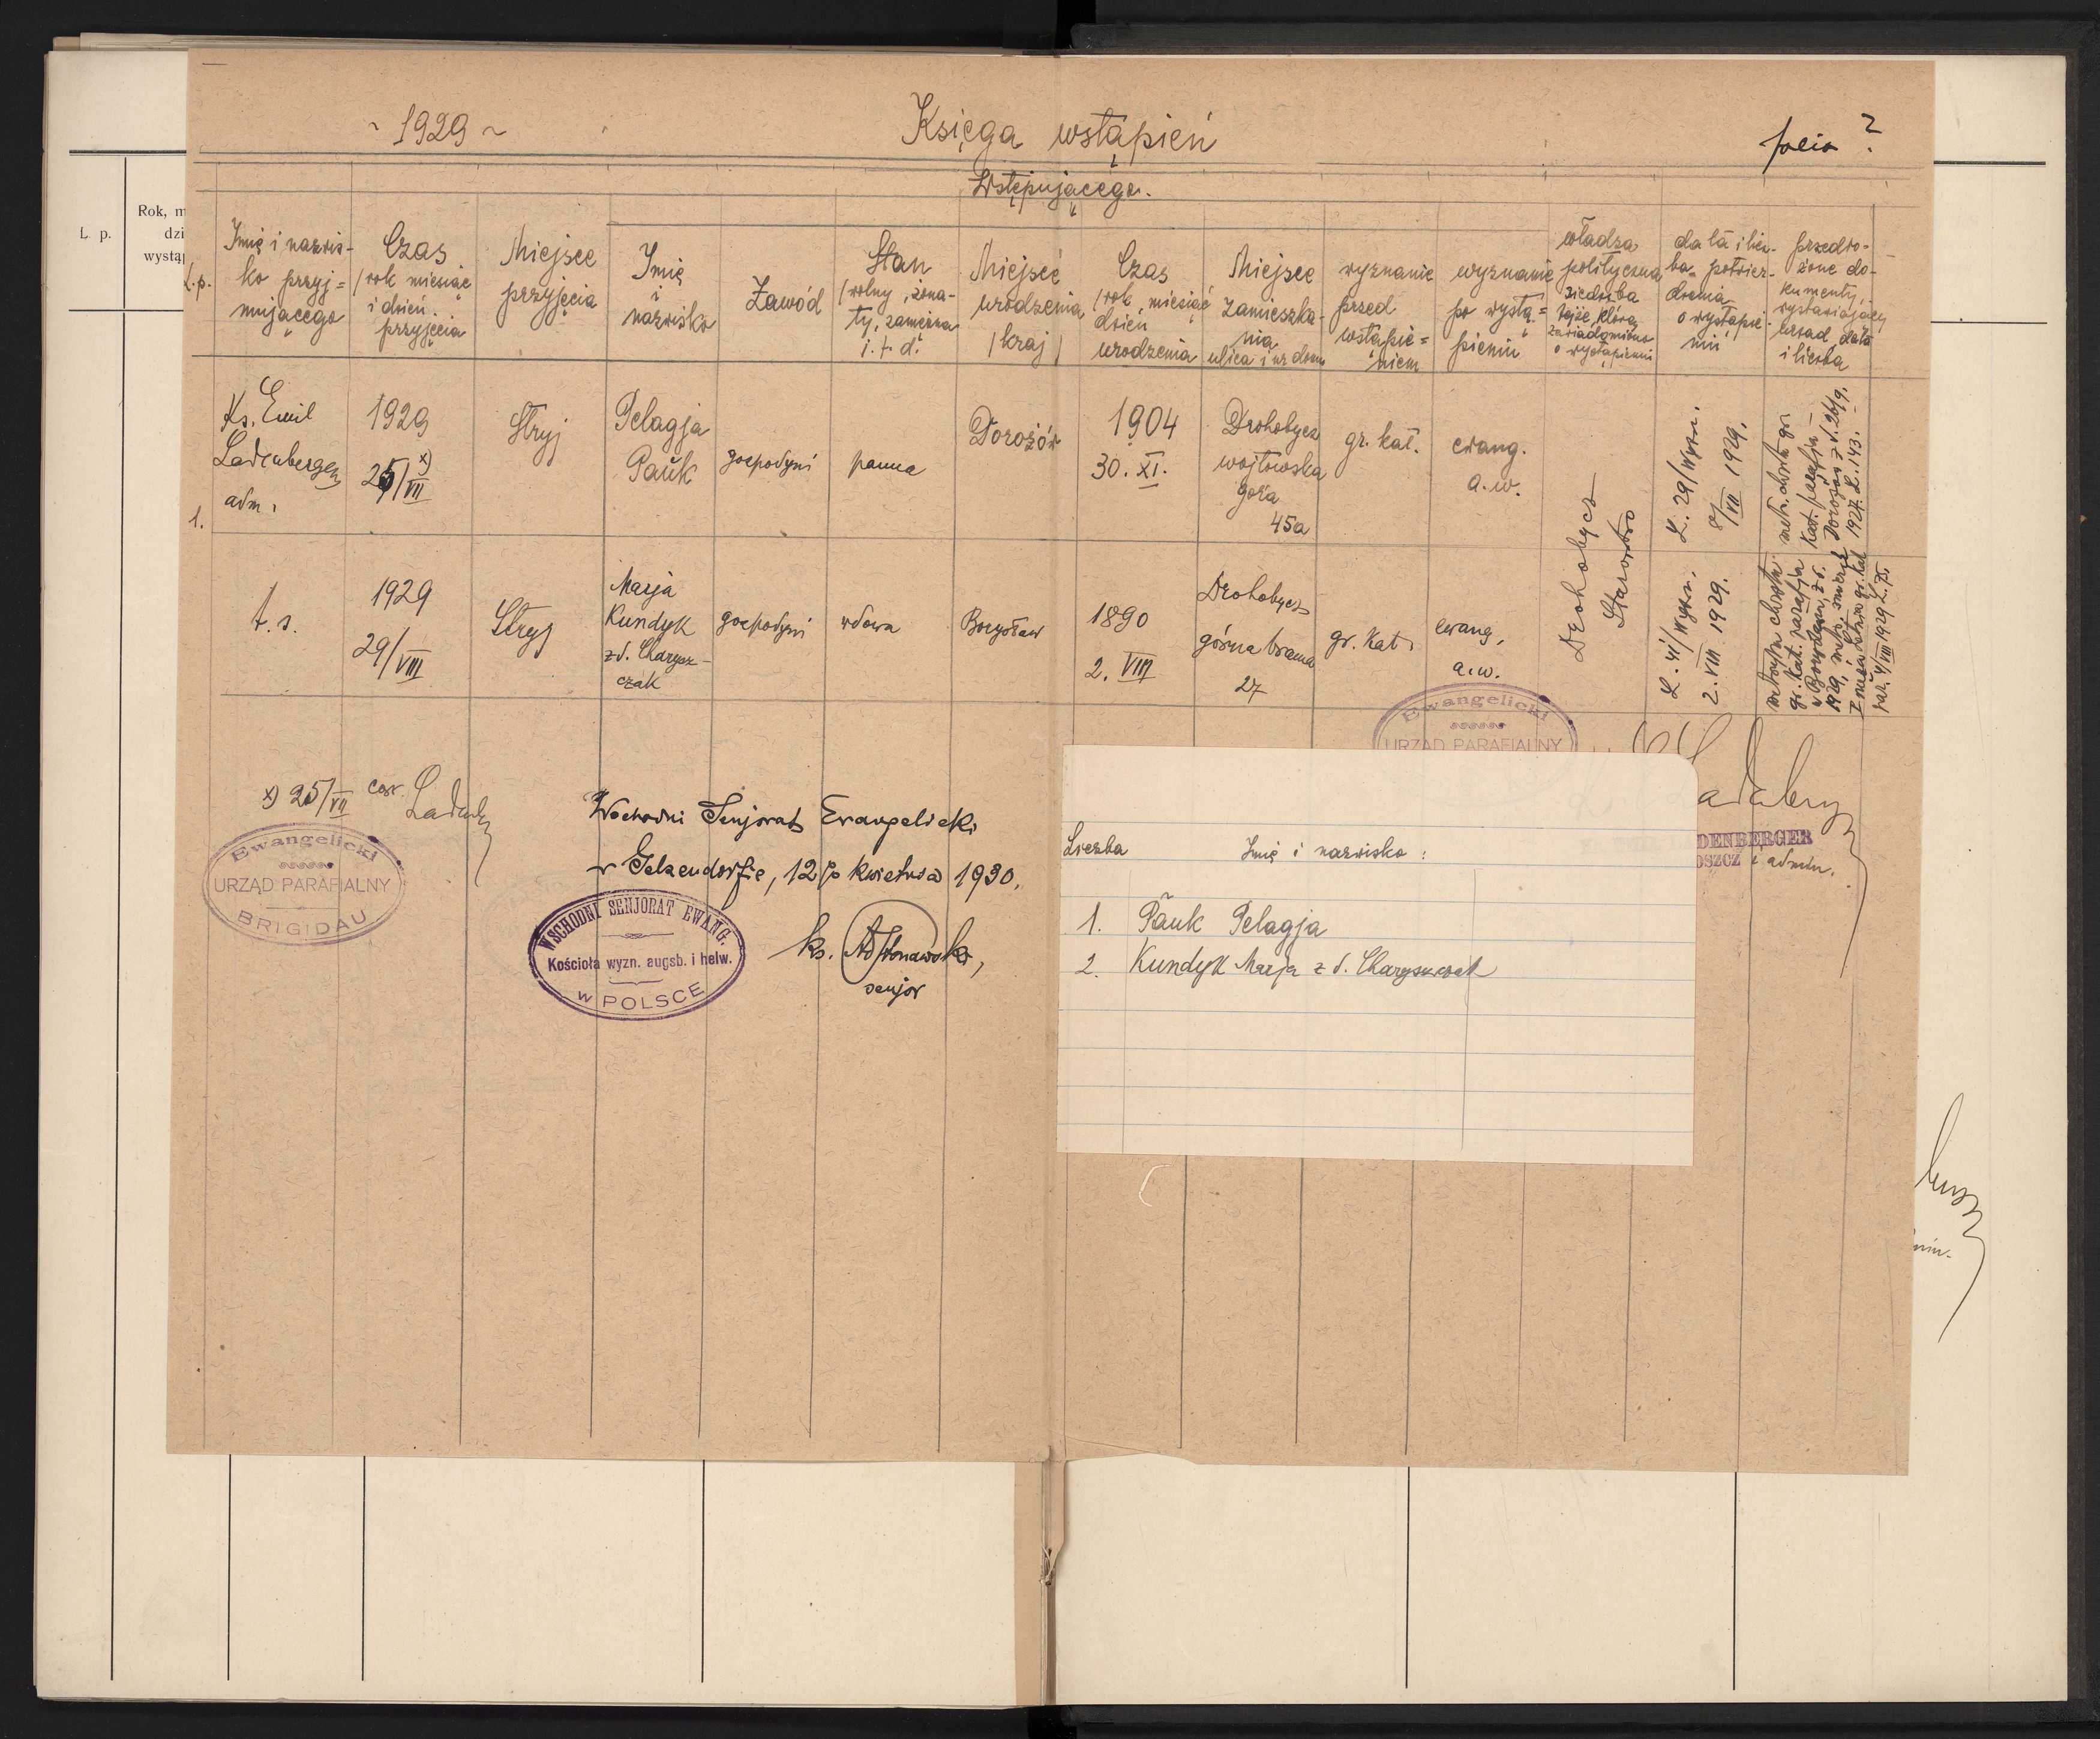 ~ 1929 ~
Księga wstąpień
folio 2
Wstępującego.
Ł. p.
Rok, m
dzi
wystąp
L.p.
Imię i nazwis-
ko przyj=
mującego
Czas
/rok miesiąc
i dzień.
przyjęcia
Miejsce
przyjęcia
Imię
i
nazwisko
Zawód
Stan
/wolny, żona-
ty, zamężna
i. t. d.
Miejsce
urodzenia
/kraj/
Czas
/rok, miesiąc
dzień
urodzenia
Miejsce
zamieszka-
nia
ulica i nr domu
wyznanie
przed
wstąpie=
niem
wyznanie
po wystą=
pieniu
władza
polityczna
siedziba
tejże, którą
zawiadomiono
o wystąpieniu
data i licz-
ba potwier-
dzenia
o wystąpie-
niu
przedło-
żone do-
kumenty,
wystawiający
urząd, data
i liczba
1.
Ks. Emil
Ladenberger
adm.
1929
25/VII x)
Stryj
Pelagja
Pauk
gospodyni
panna
Dorożów
1904
30. XI.
Drohobycz
wojtowska
góra
45a
gr. kat.
ewang.
a.w.
Drohobycz
Starostwo
L. 29/wyzn.
8/VII 1929.
metr. chrztu gr.
kat. parafji
Dorożów z d. 26/9.
1927. L. 143.
t. s.
1929
29/VIII
Stryj
Marja
Kundyk
z d. Charysz-
czak
gospodyni
wdowa
Borysław
1890
2. VIII
Drohobycz
górna brama
27
gr. kat.
ewang.
a.w.
L. 41/wyzn.
2. VIII 1929.
metryka chrztu
gr. kat. parafji
w Borysławiu, z d.
1929, i metr. śmierci
gr. kat.
par. 4/VIII 1929 L. 75.
x) 25/VII corr. Ladenberger
Ewangelicki
URZĄD PARAFIALNY
BRIGIDAU
Wschodni Senjorat Ewangelicki
w Gelsendorfie, 12go kwietnia 1930.
WSCHODNI SENJORAT EWANG.
Kościoła wyzn. augsb. i helw.
w POLSCE
senjor
Ewangelicki
URZĄD PARAFIALNY
DENBERGER
OSZCZ i admin.
Liczba
Imię i nazwisko:
1. Pauk Pelagja
2. Kundyk Marja z d. Charyszczak
min.